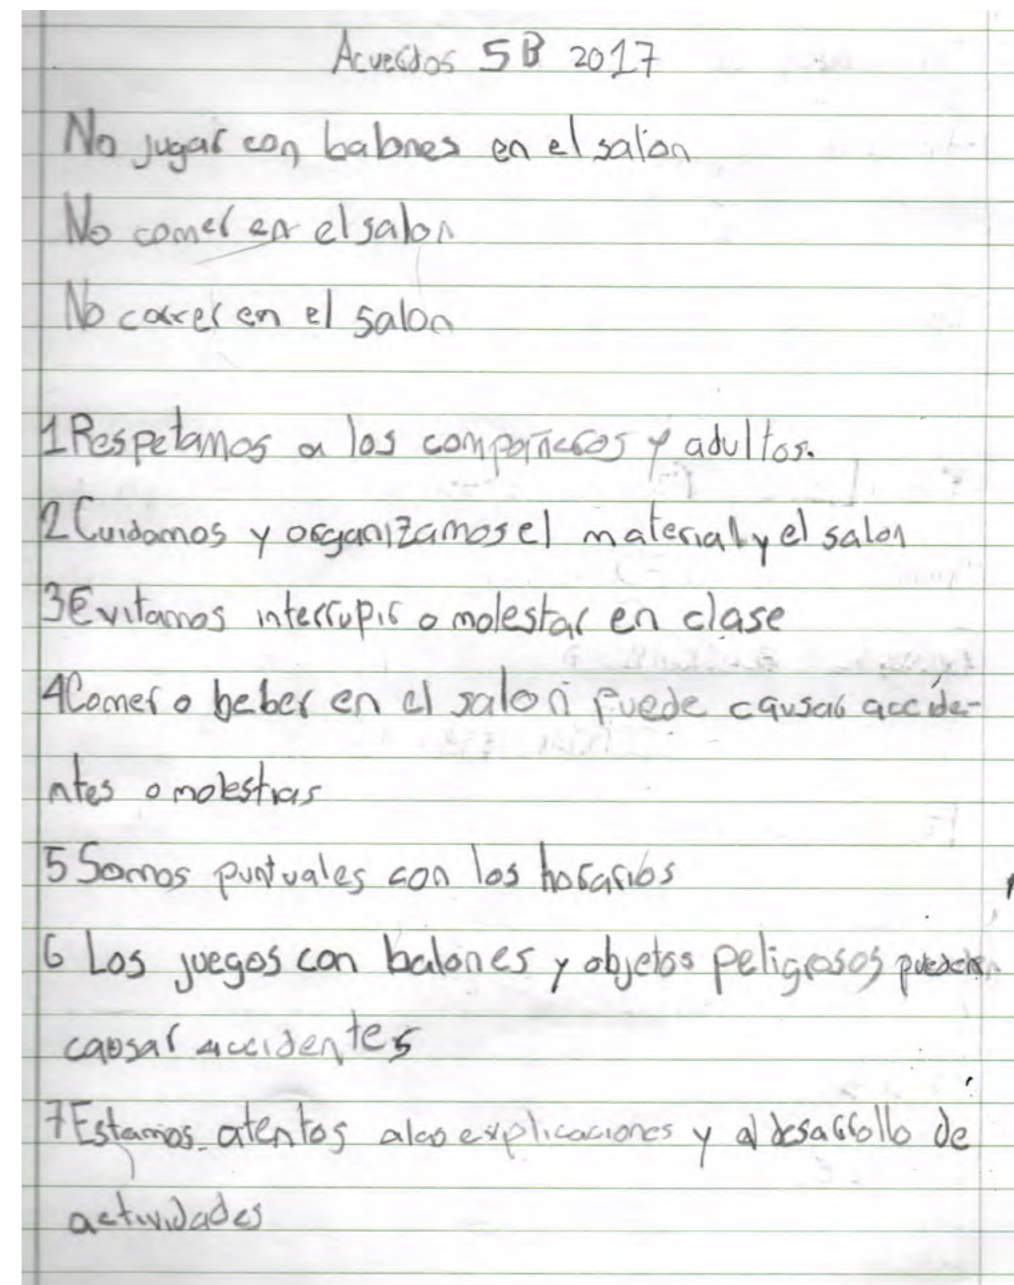 Acuerdos 5B 2017
No jugar con balones en el salón
No comer en el salon
No correr en el salon
1 Respetamos a los compañeros y adultos.
2 Cuidamos y organizamos el material y el salon
3 Evitamos interrupir o molestar en clase
4 Comer o beber en el salon puede causar accide-
ntes o molestias
5 Somos puntuales con los horarios
6 Los juegos con balones y objetos peligrosos pueden
causar accidentes
7 Estamos atentos a las explicaciones y al desarrollo de
actividades